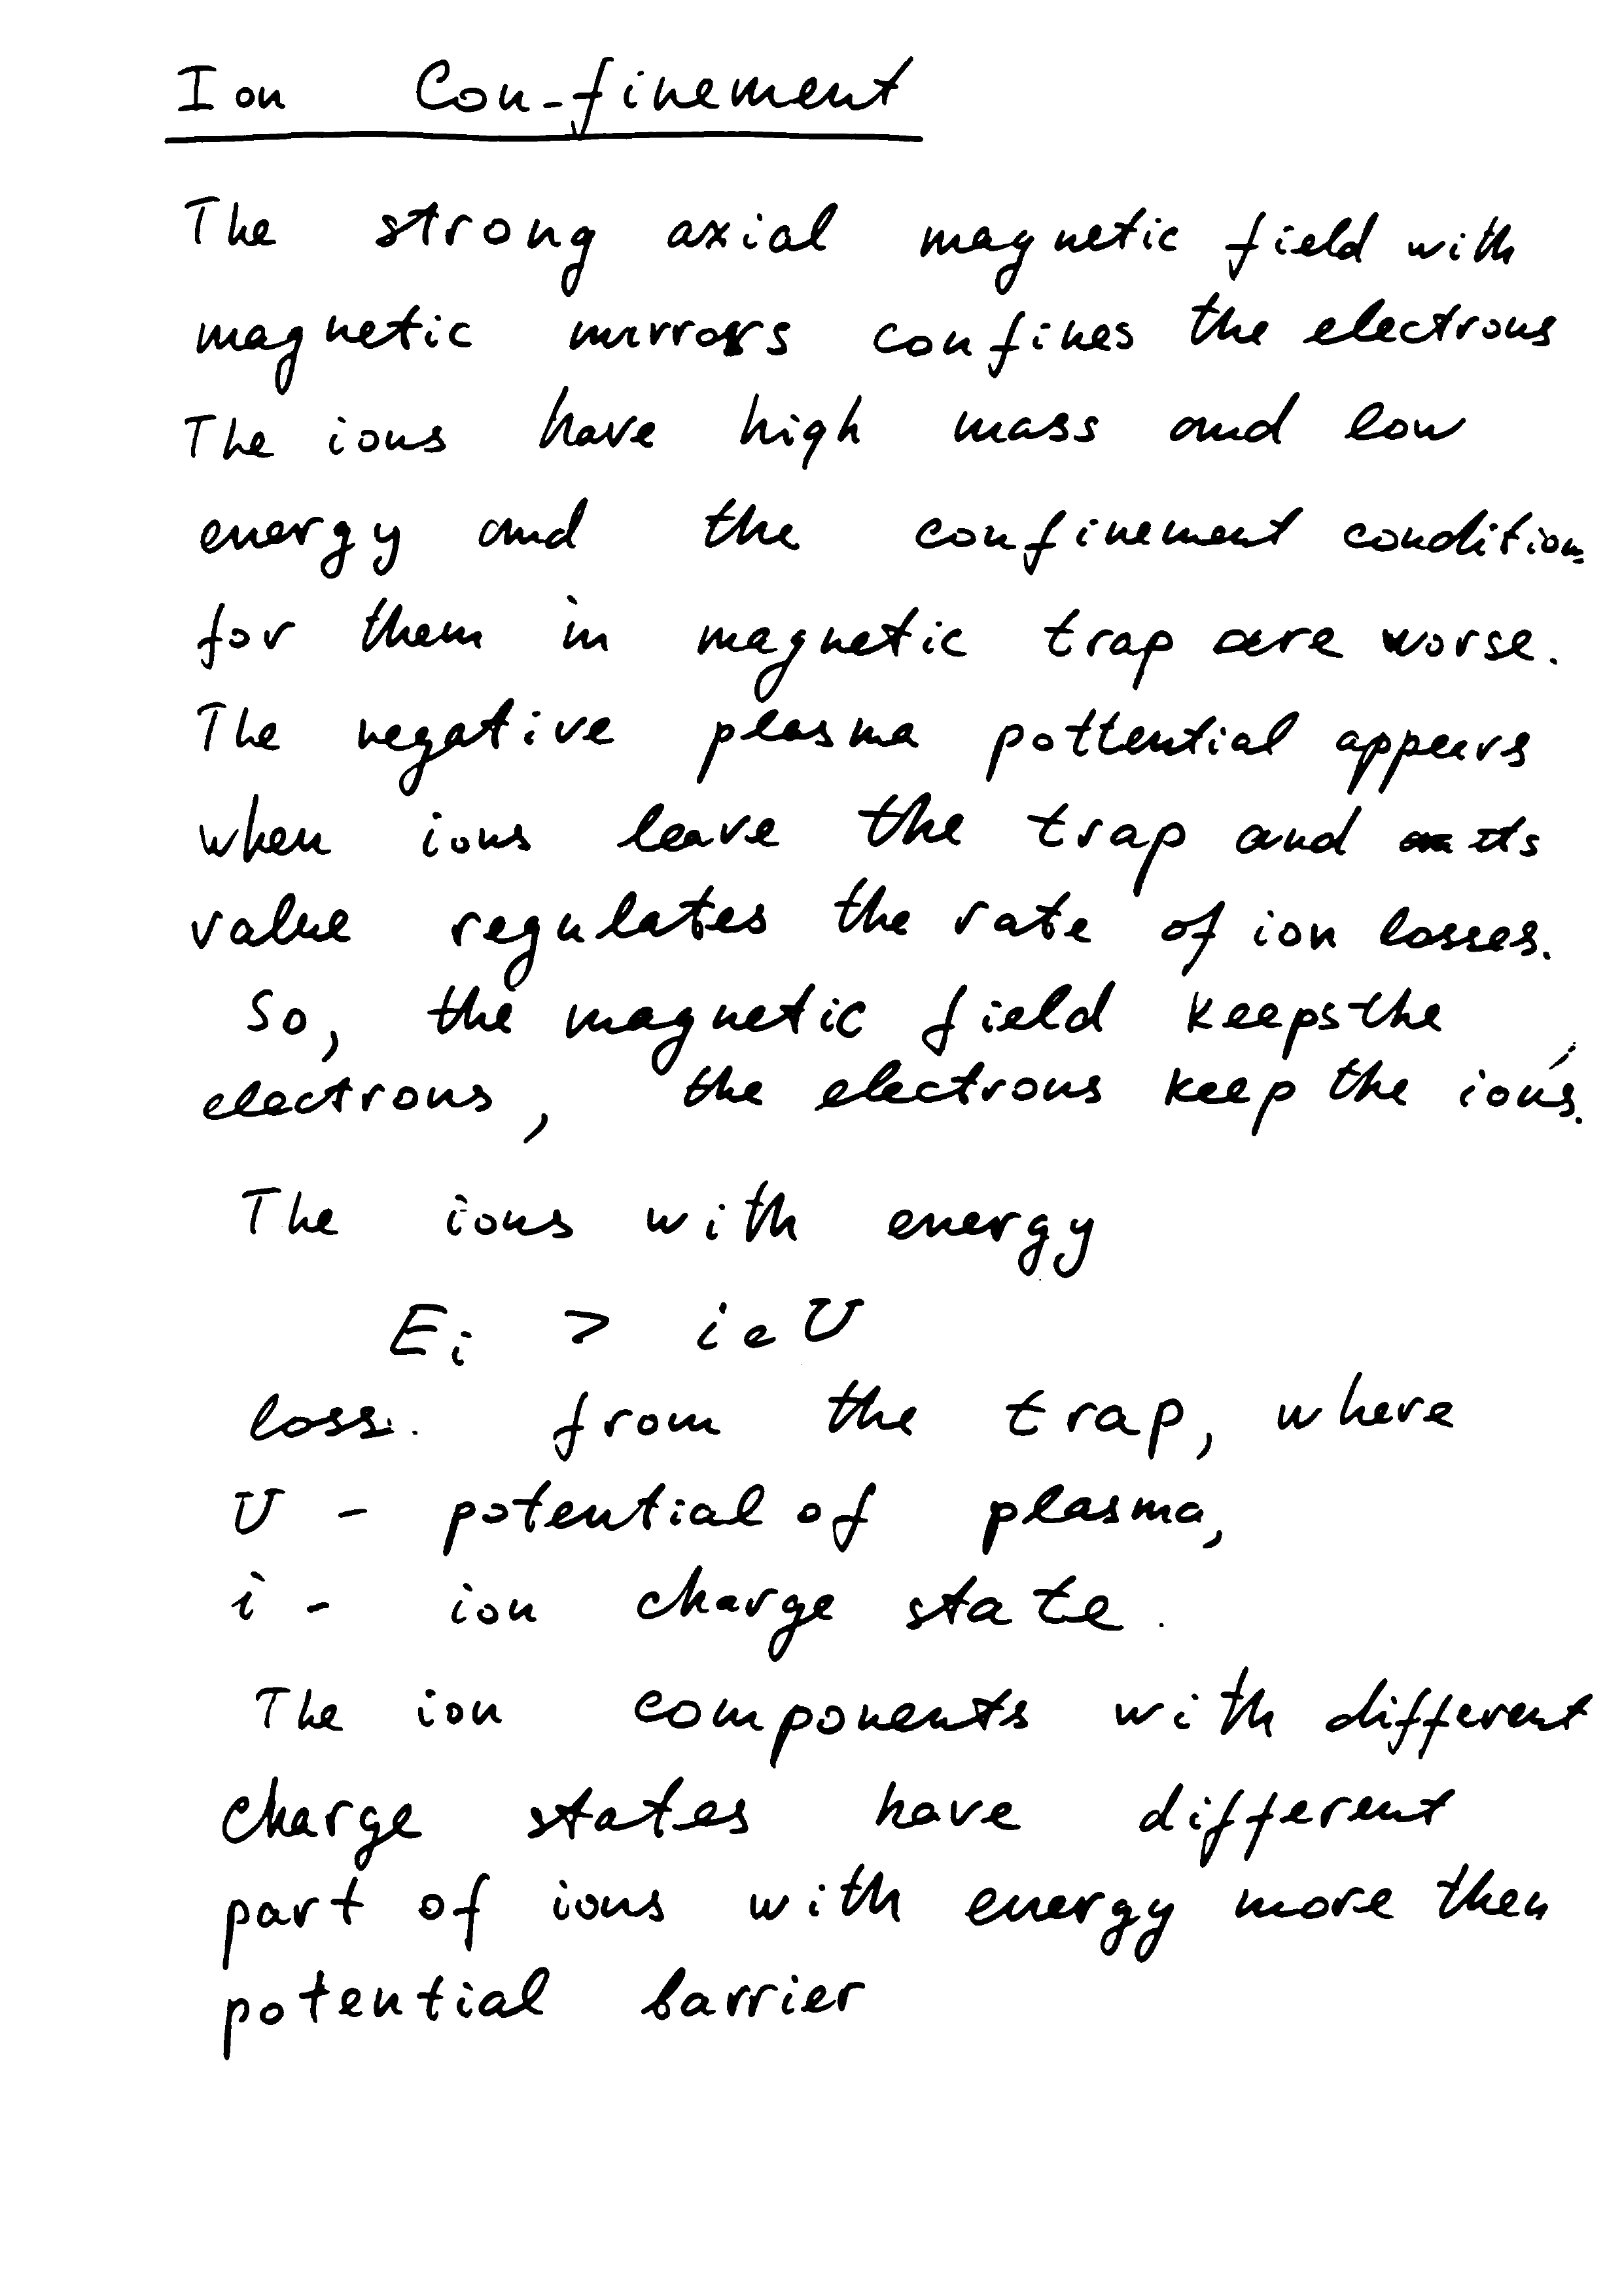 Ion Confinement
The strong axial magnetic field with
magnetic mirrors confines the electrons
The ions have high mass and low
energy and the confinement conditions
for them in magnetic trap are worse.
The negative plasma pottential appears
when ions leave the trap and its
value regulates the rate of ion losses.
So, the magnetic field keeps the
electrons, the electrons keep the ions.
The ions with energy
Ei > ieU
loss. from the trap, where
U - potential of plasma,
i - ion charge state.
The ion components with different
charge states have different
part of ions with energy more then
potential barrier